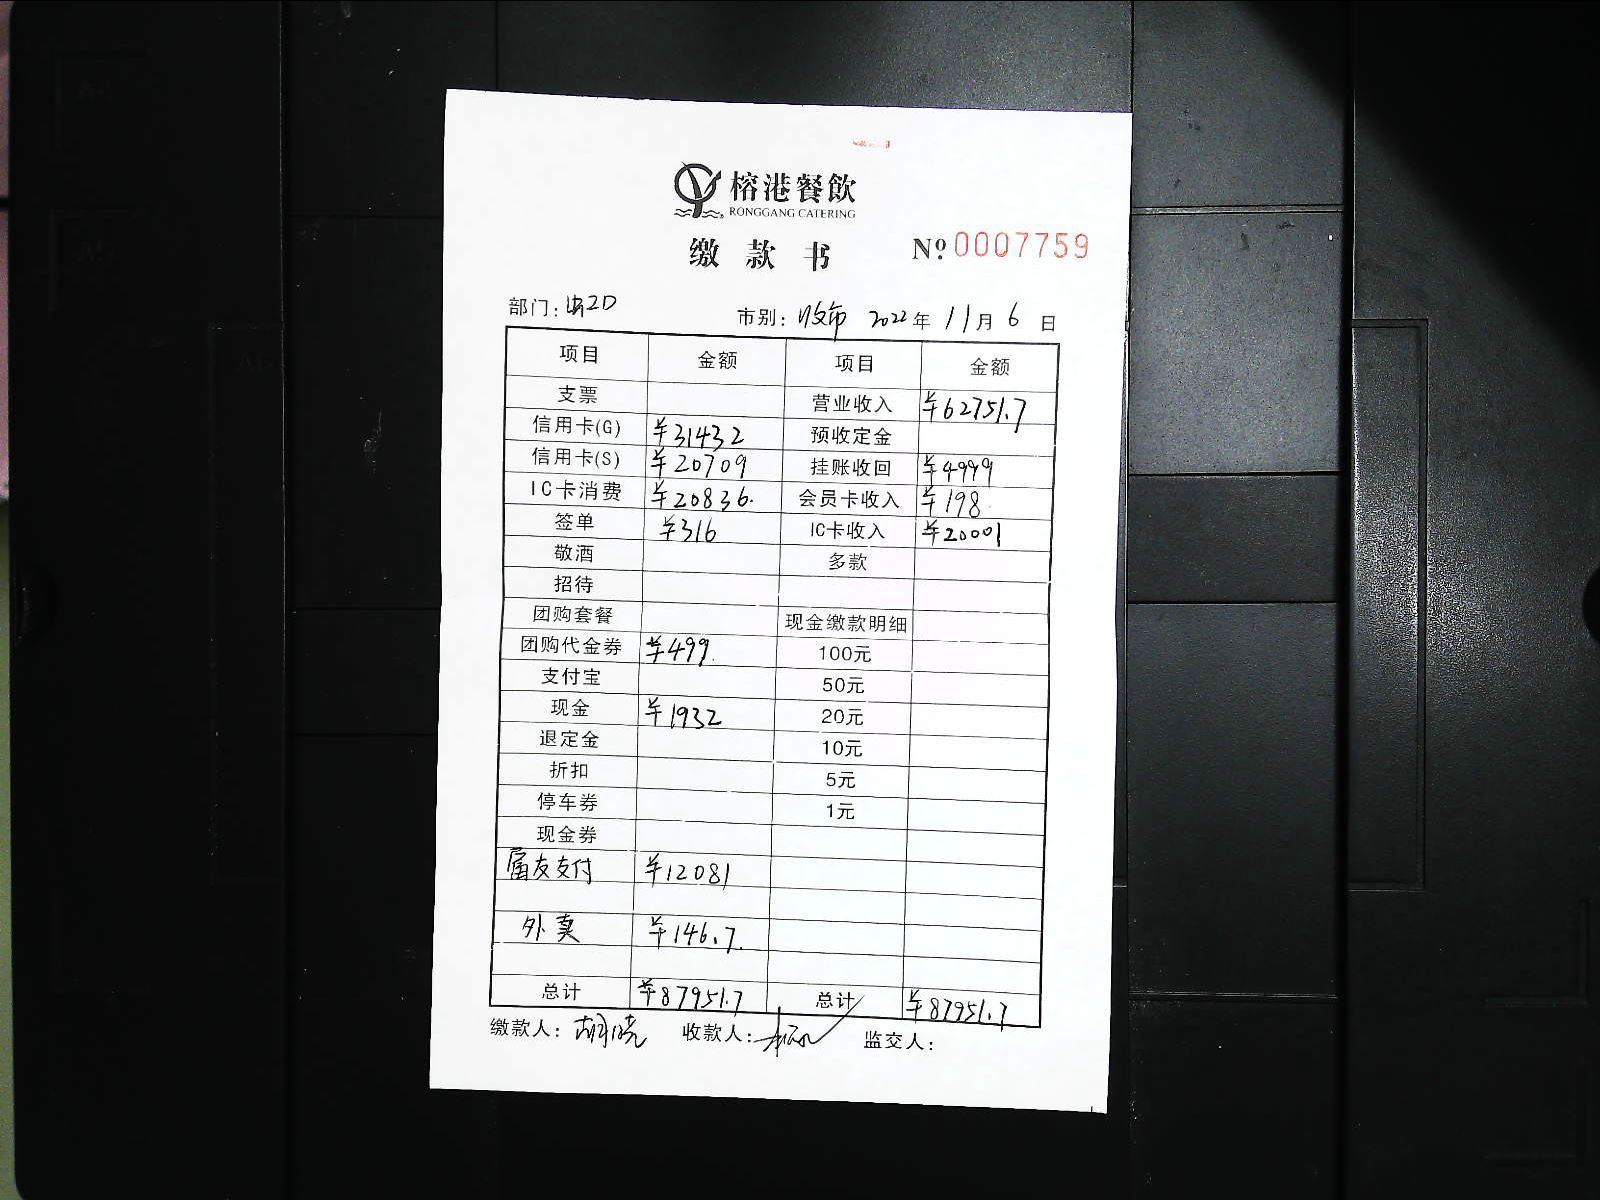 榕港餐飲
RONGGANG CATERING
缴款书 Nº 0007759
部门: 2D 市别: 收市 2022年 11月 6日
项目 金额 项目 金额
支票 营业收入 ¥62751.7
信用卡(G) ¥31432 预收定金
信用卡(S) ¥20709 挂账收回 ¥4999
IC卡消费 ¥20836. 会员卡收入 ¥198
签单 ¥316 IC卡收入 ¥20001
敬酒 多款
招待
团购套餐 现金缴款明细
团购代金券 ¥499. 100元
支付宝 50元
现金 ¥1932 20元
退定金 10元
折扣 5元
停车券 1元
现金券
富友支付 ¥12081
外卖 ¥146.7.
总计 ¥87951.7 总计 ¥87951.7
缴款人: 胡晓 收款人: 监交人: